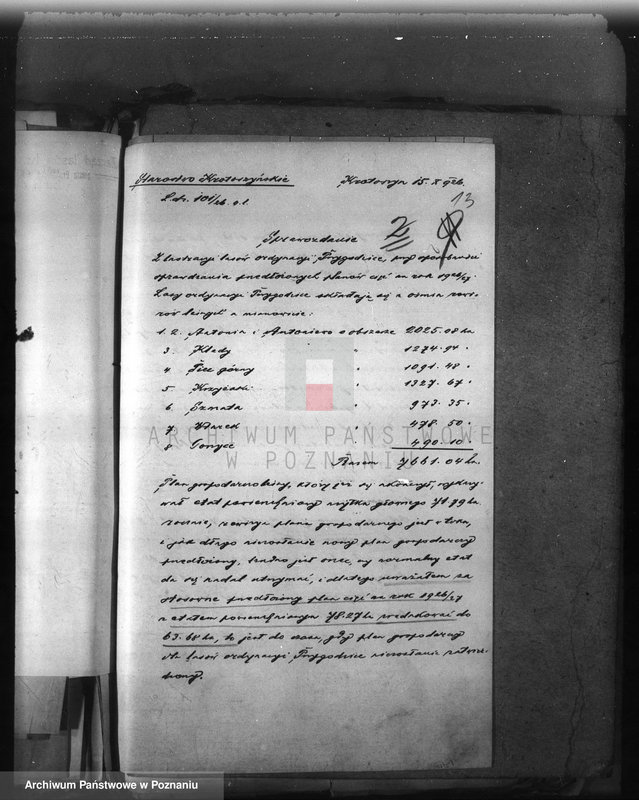 Starostwo Krotoszyńskie
Krotoszyn 15. X 926.
L.dz. 101/26. o.l.
13
2
Sprawozdanie
Z lustracji lasów ordynacji Przygodzice, przy sposobności
sprawdzania przedłożonych planów cięć na rok 1926/27.
Lasy ordynacji Przygodzice składają się z ośmiu rewi-
rów leśnych a mianowicie:
1. 2. Antonin i o obszarze 2025.08 ha
3. Kłady " 1274.94 "
4. górny " 1091.48 "
5. " 1327.67 "
6. Szmata " 973.35 "
7. " 478.50 "
8. " 490.10 "
Razem 7661.04 ha.
Plan gospodarczy, który już się ukończył, wykazy-
wał etat powierzchniowy użytku głównego
rocznie, rewizja planu gospodarczego jest w toku,
i jak długo niezostanie nowy plan gospodarczy
przedłożony, trudno jest orzec, czy normalny etat
da się nadal utrzymać, i dlatego uważałem za
stosowne przedłożony plan cięć na rok 1926/27
z etatem powierzchniowym 78.27 ha zredukować do
63.68 ha, to jest do czasu, gdy plan gospodarczy
dla lasów ordynacji Przygodzice niezostanie zatwier-
dzony.
ARCHIWUM PAŃSTWOWE
W POZNANIU
Archiwum Państwowe w Poznaniu